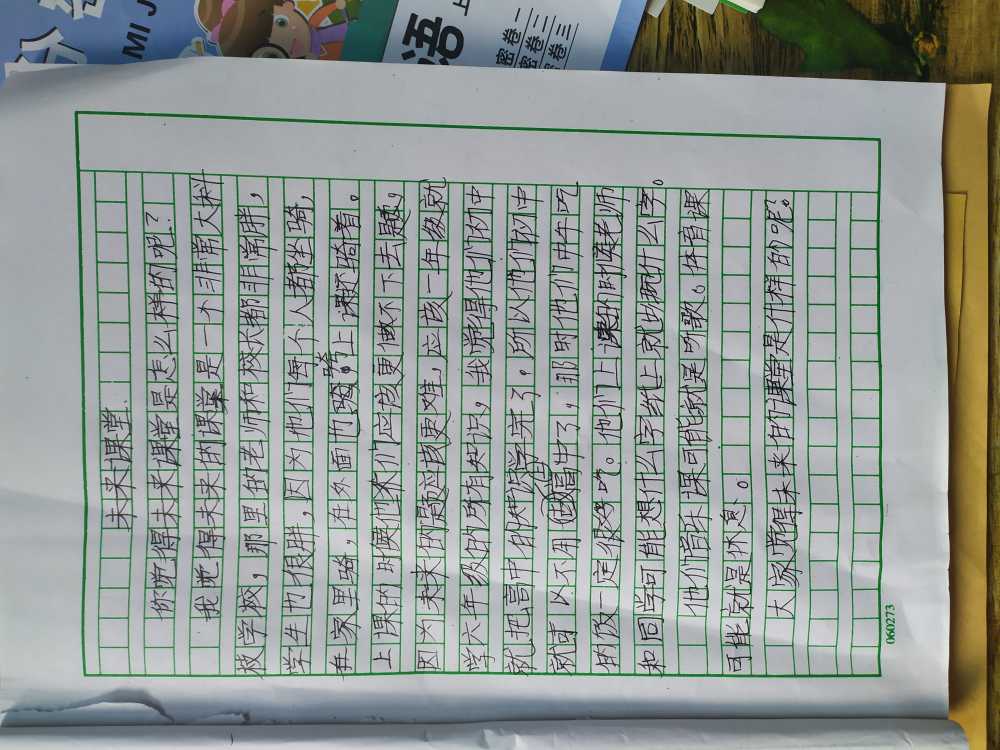 未来课堂
你觉得未来课堂是怎么样的呢？
我觉得未来的课堂是一个非常大科
技学校，那里的老师和校长都非常胖，
学生也很胖，因为他们每个人都坐骑，
在家里骑，在外面也骑。骑上课还骑着。
上课的时候他们应该更做不下去题，
因为未来的题应该更难，应该一年级就
学六年级的所有知识，我觉得他们初中
就把高中的知识学完了，所以他们初中
就可以不用做高中了，那时他们中午吃
的饭一定很多吧。他们上课的时候老师
和同学可能想什么字纸上就出现什么字。
他们音乐课可能就是听歌。体育课
可能就是休息。
大家觉得未来的课堂是什样的呢？
060273
MI J
语
上
密卷一
密卷二
密卷三